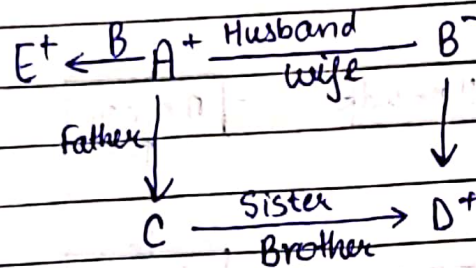 E+ B A+ Husband B-
wife
Father
C Sister D+
Brother